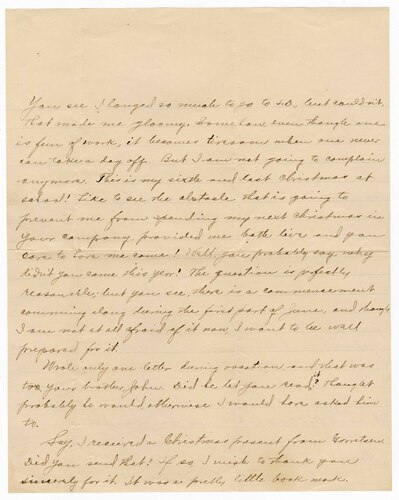 You see I longed so much to go to S.D. but couldn't.
that made me gloomy. Somehow, even though one
is fun of work, it becomes tiresome when one never
can take a day off. But I am not going to complain
anymore. This is my sixth and last Christmas at
school! Like to see the obstacle that is going to
prevent me from spending my next Christmas in
Your company, provided we both live and you
care to have me come! Well, you probably say, why
didn't you come this year? The question is perfectly
reasonable, but you see, there is a commencement
comming along during the first part of June, and though
I am not at all afraid of it now, I want to be well
prepared for it.
Wrote only one letter during vacation and that was
to your brother, John. Did he let you read it? Thought
probably he would, otherwise I would have asked him
to.
Say, I received a Christmas present from
Did you send that? If so, I wish to thank you
sincerely for it. It was a pretty little book mark.